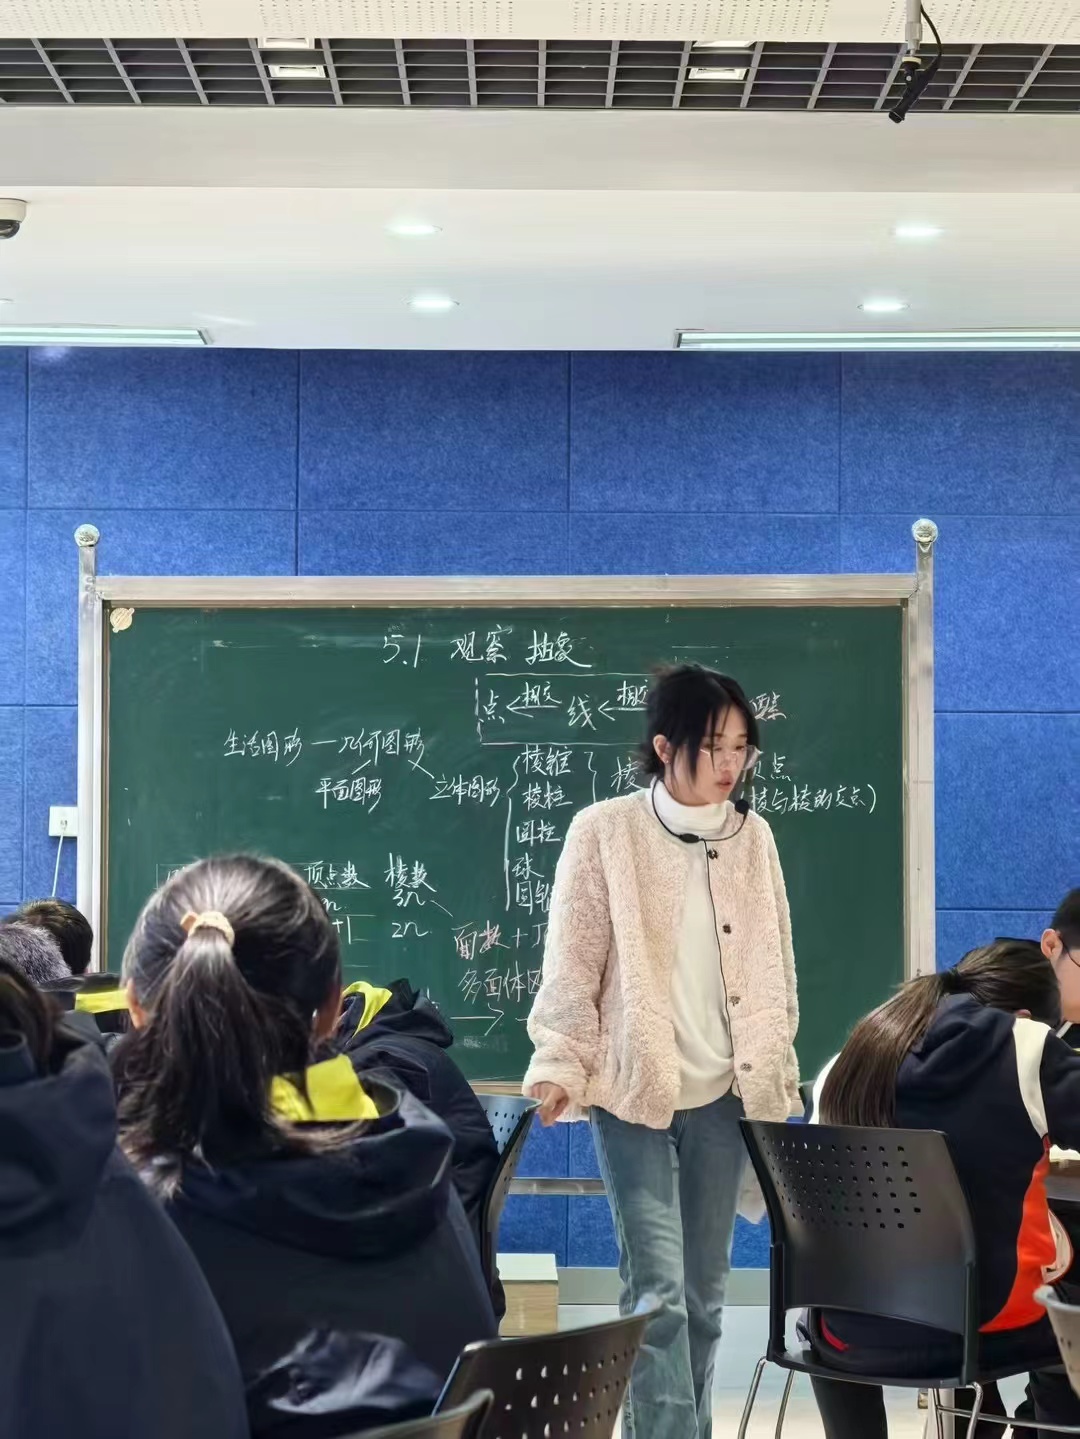 5.1 观察 抽象
点 ← 相交 线 ← 相交
生活图形 — 几何图形
平面图形 立体图形
棱锥
棱柱
圆柱
球
圆锥
棱
顶点
(棱与棱的交点)
顶点数 棱数
3n
+1 2n
面数 +
多面体